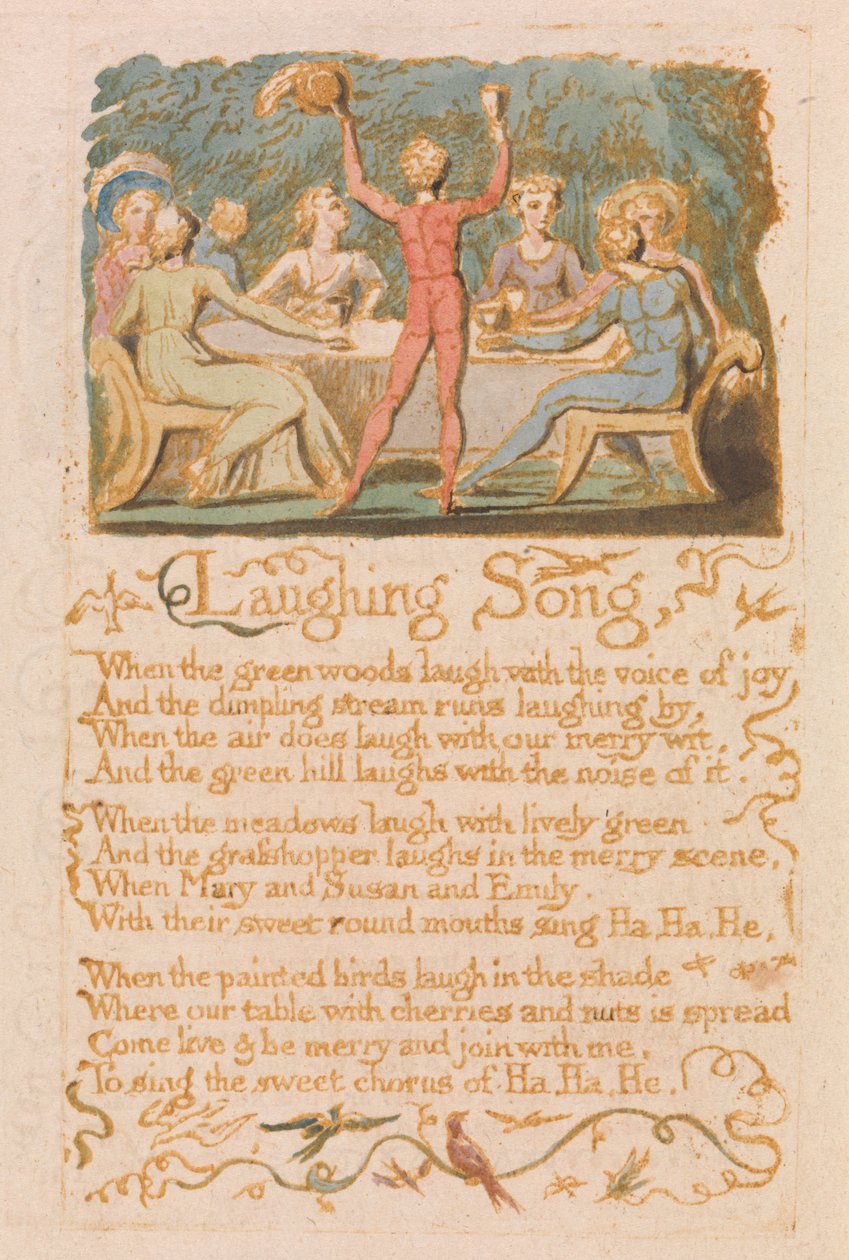 Laughing Song,
When the green woods laugh with the voice of joy
And the dimpling stream runs laughing by,
When the air does laugh with our merry wit,
And the green hill laughs with the noise of it.
When the meadows laugh with lively green
And the graſshopper laughs in the merry scene,
When Mary and Susan and Emily,
With their sweet round mouths sing Ha, Ha, He,
When the painted birds laugh in the shade
Where our table with cherries and nuts is spread
Come live & be merry and join with me,
To sing the sweet chorus of Ha, Ha, He,